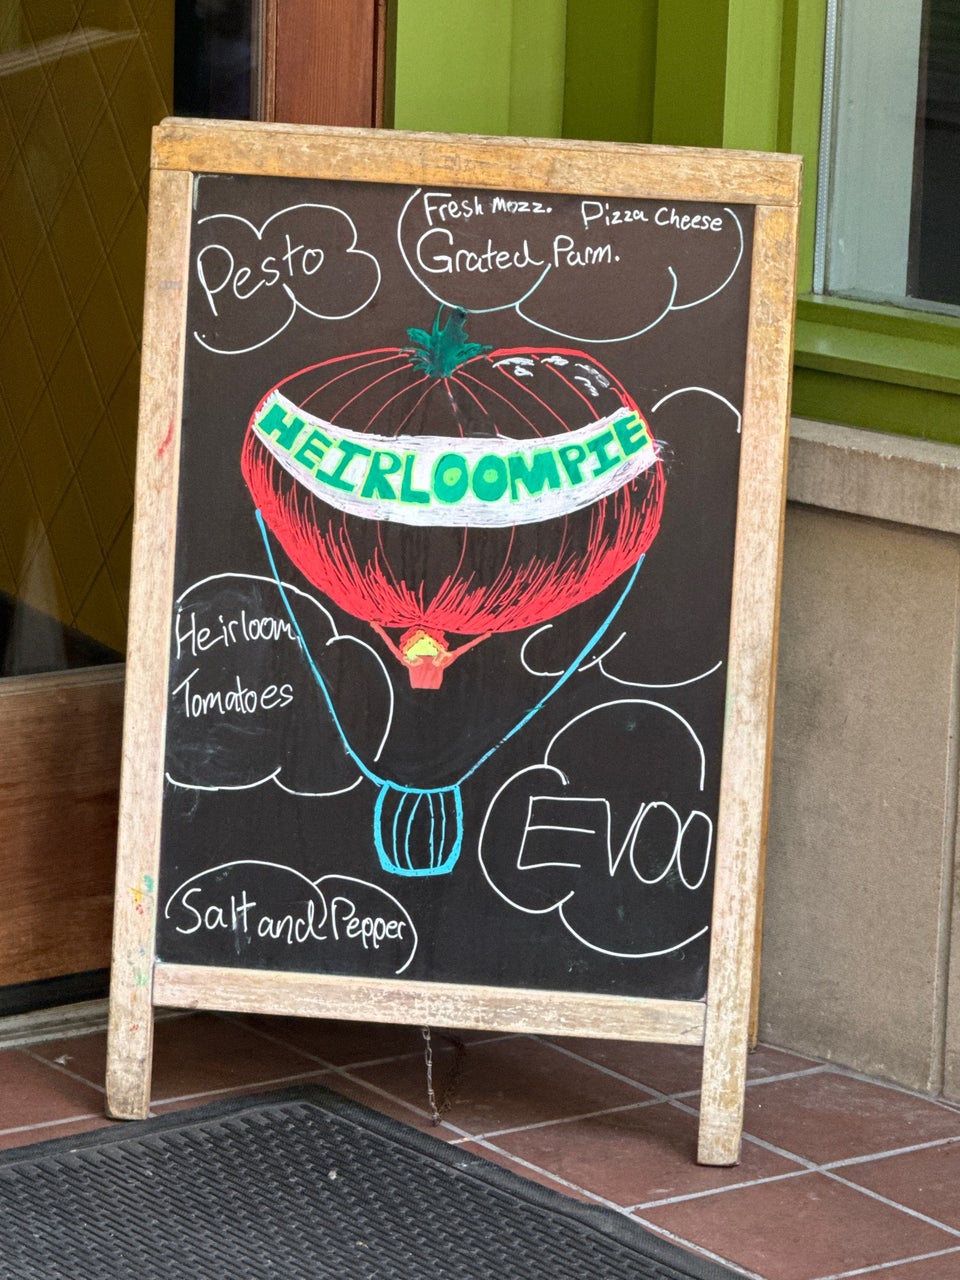 Pesto
Fresh Mozz. Pizza Cheese
Grated Parm.
HEIRLOOMPIE
Heirloom
Tomatoes
EVOO
Salt and Pepper